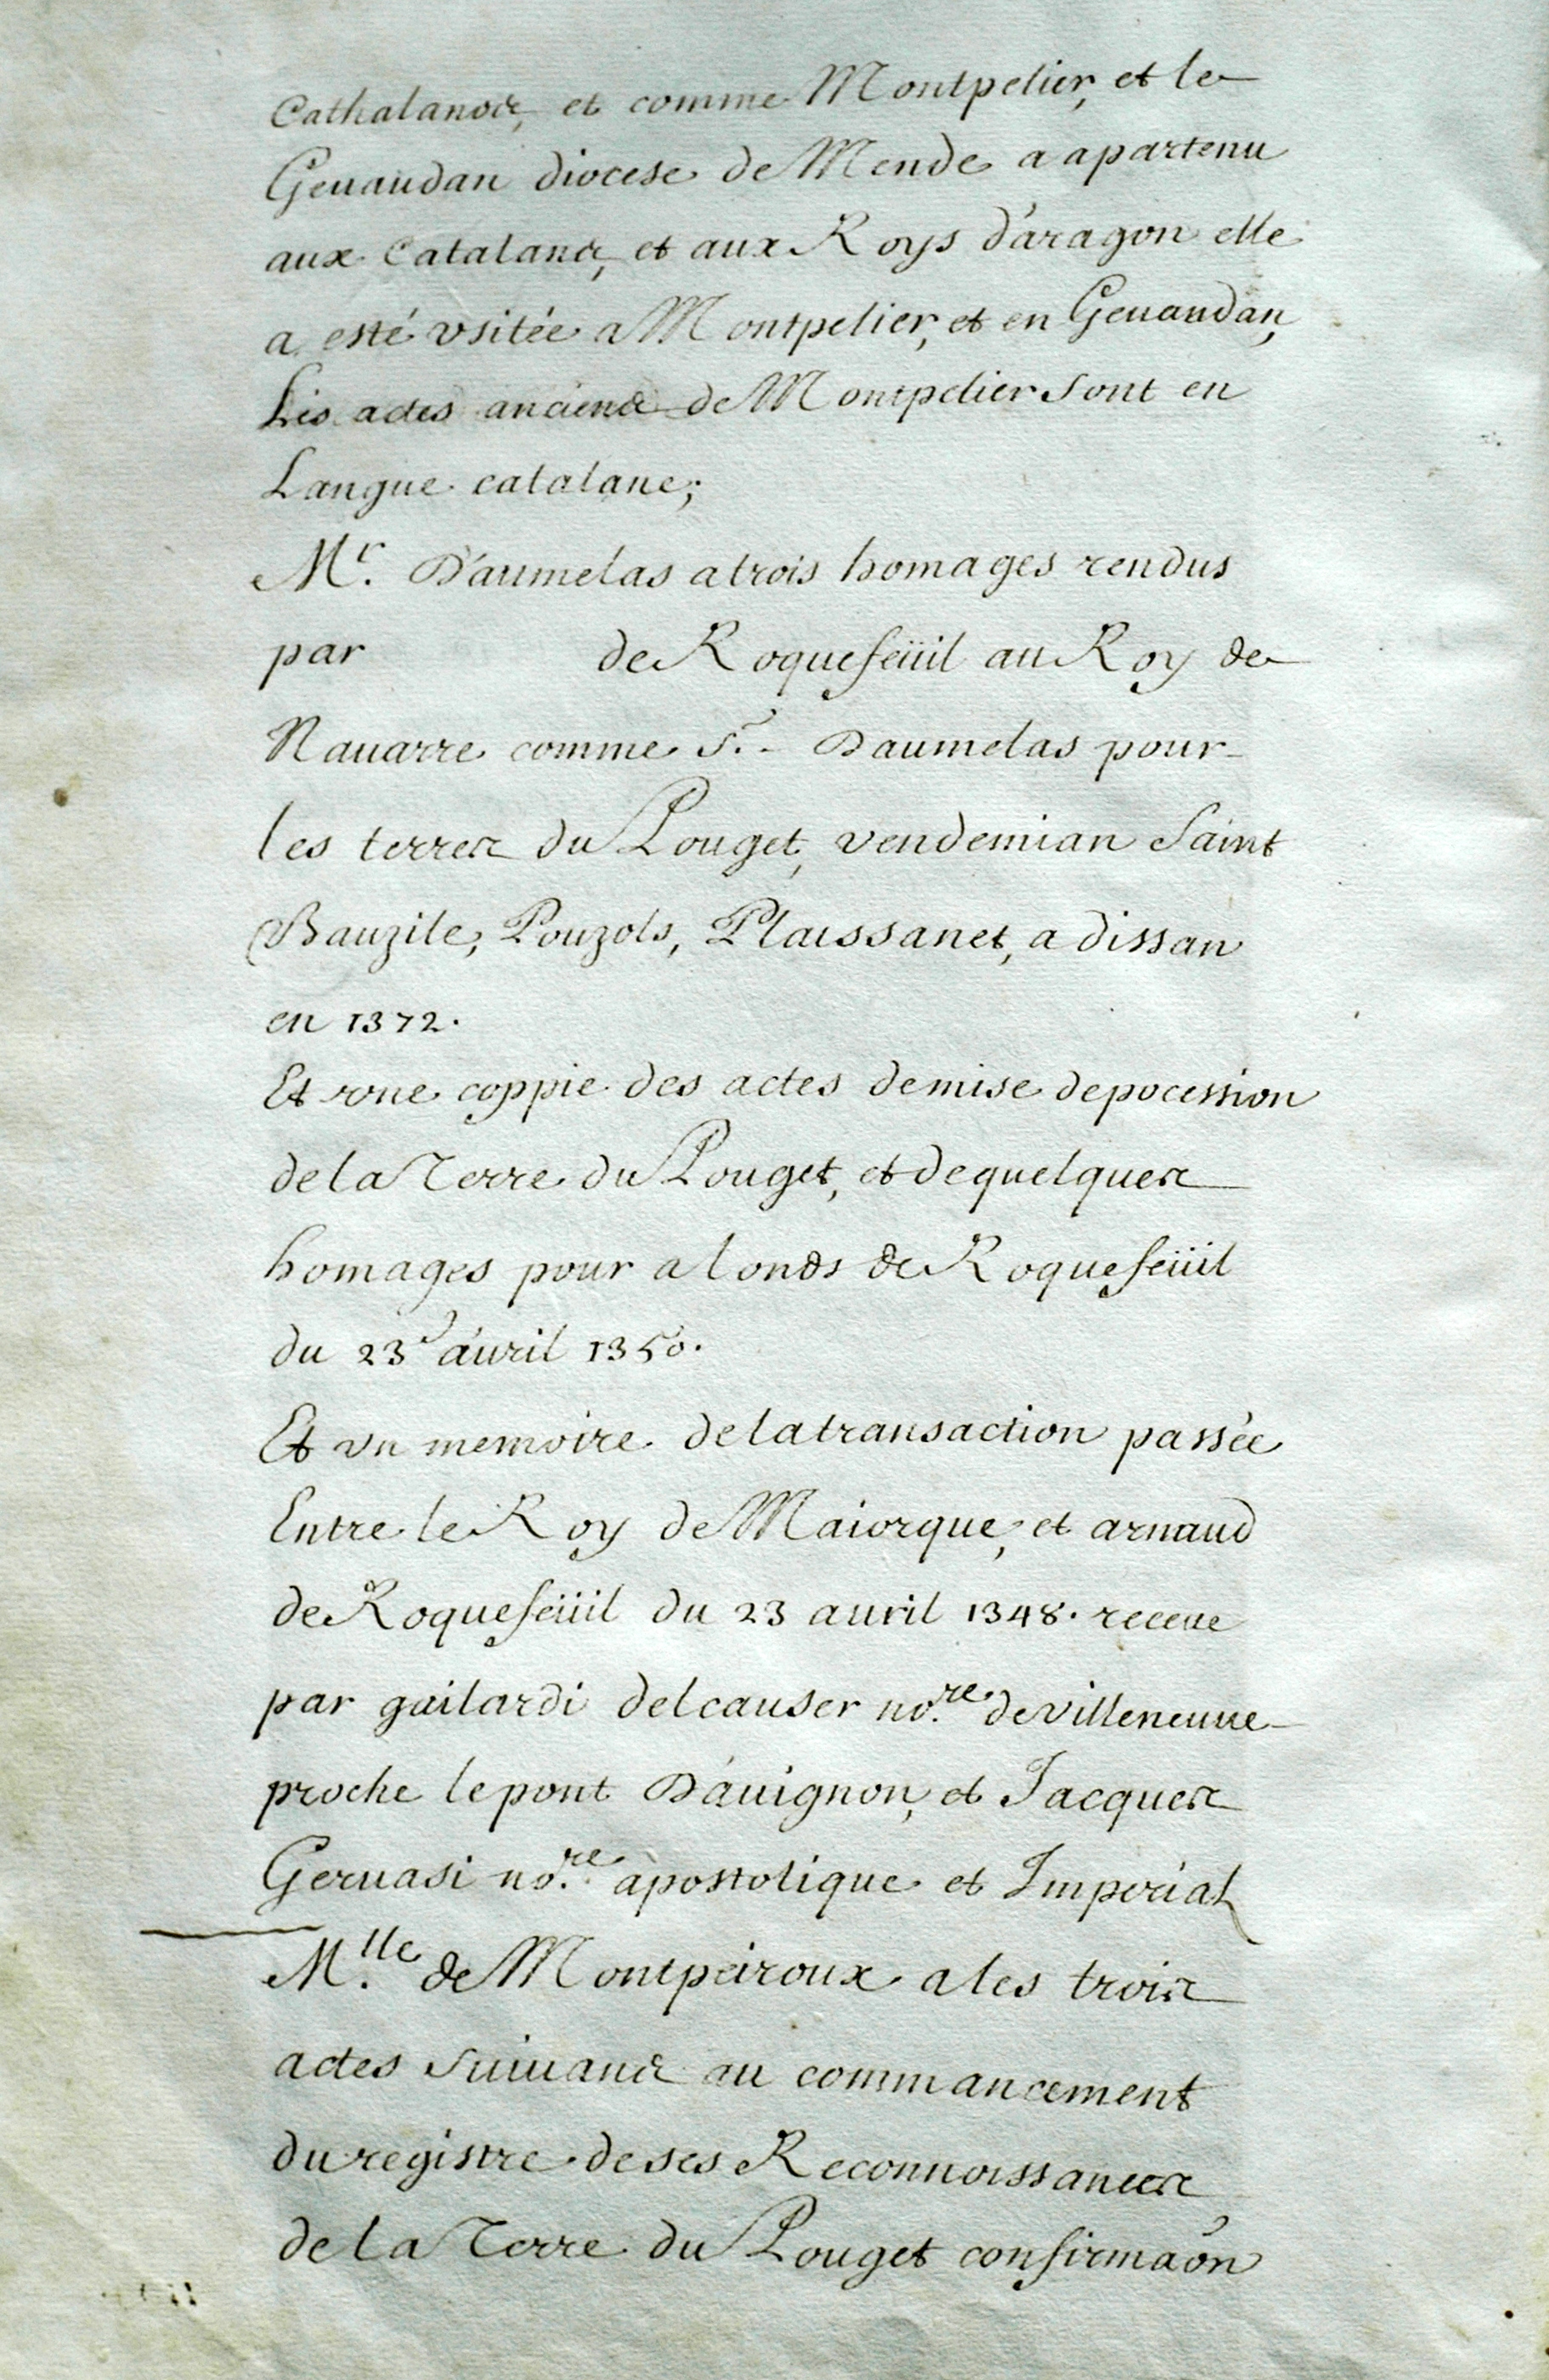 Cathalanos, et comme Montpelier, et le
Geuaudan diocese de Mende a apartenu
aux Catalans, et aux Roys d'aragon elle
a esté vsitée a Montpelier, et en Geuaudan,
Les actes anciens de Montpelier sont en
Langue catalane;
Mr. D'aumelas a trois homages rendus
par de Roquefeüil au Roy de
Nauarre comme Sr. Daumelas pour
les terres du Pouget, vendemian Saint
Bauzile, Pouzols, Plaissanet, adissan
en 1372.
Et vne coppie des actes de mise de pocession
de la Terre du Pouget, et de quelques
homages pour alonds de Roquefeüil
du 23e auril 1350.
Et vn memoire de la transaction passée
Entre le Roy de Maiorque, et arnaud
de Roquefeüil du 23 auril 1348. receue
par gailardi delcauser no.re de villeneuue
proche le pont D'auignon, et Jacques
Geruasi no.re apostolique et Imperial
M.lle de Montpeiroux a les trois
actes suiuans au commancement
du registre de ses Reconnoissances
de la Terre du Pouget confirmaõn